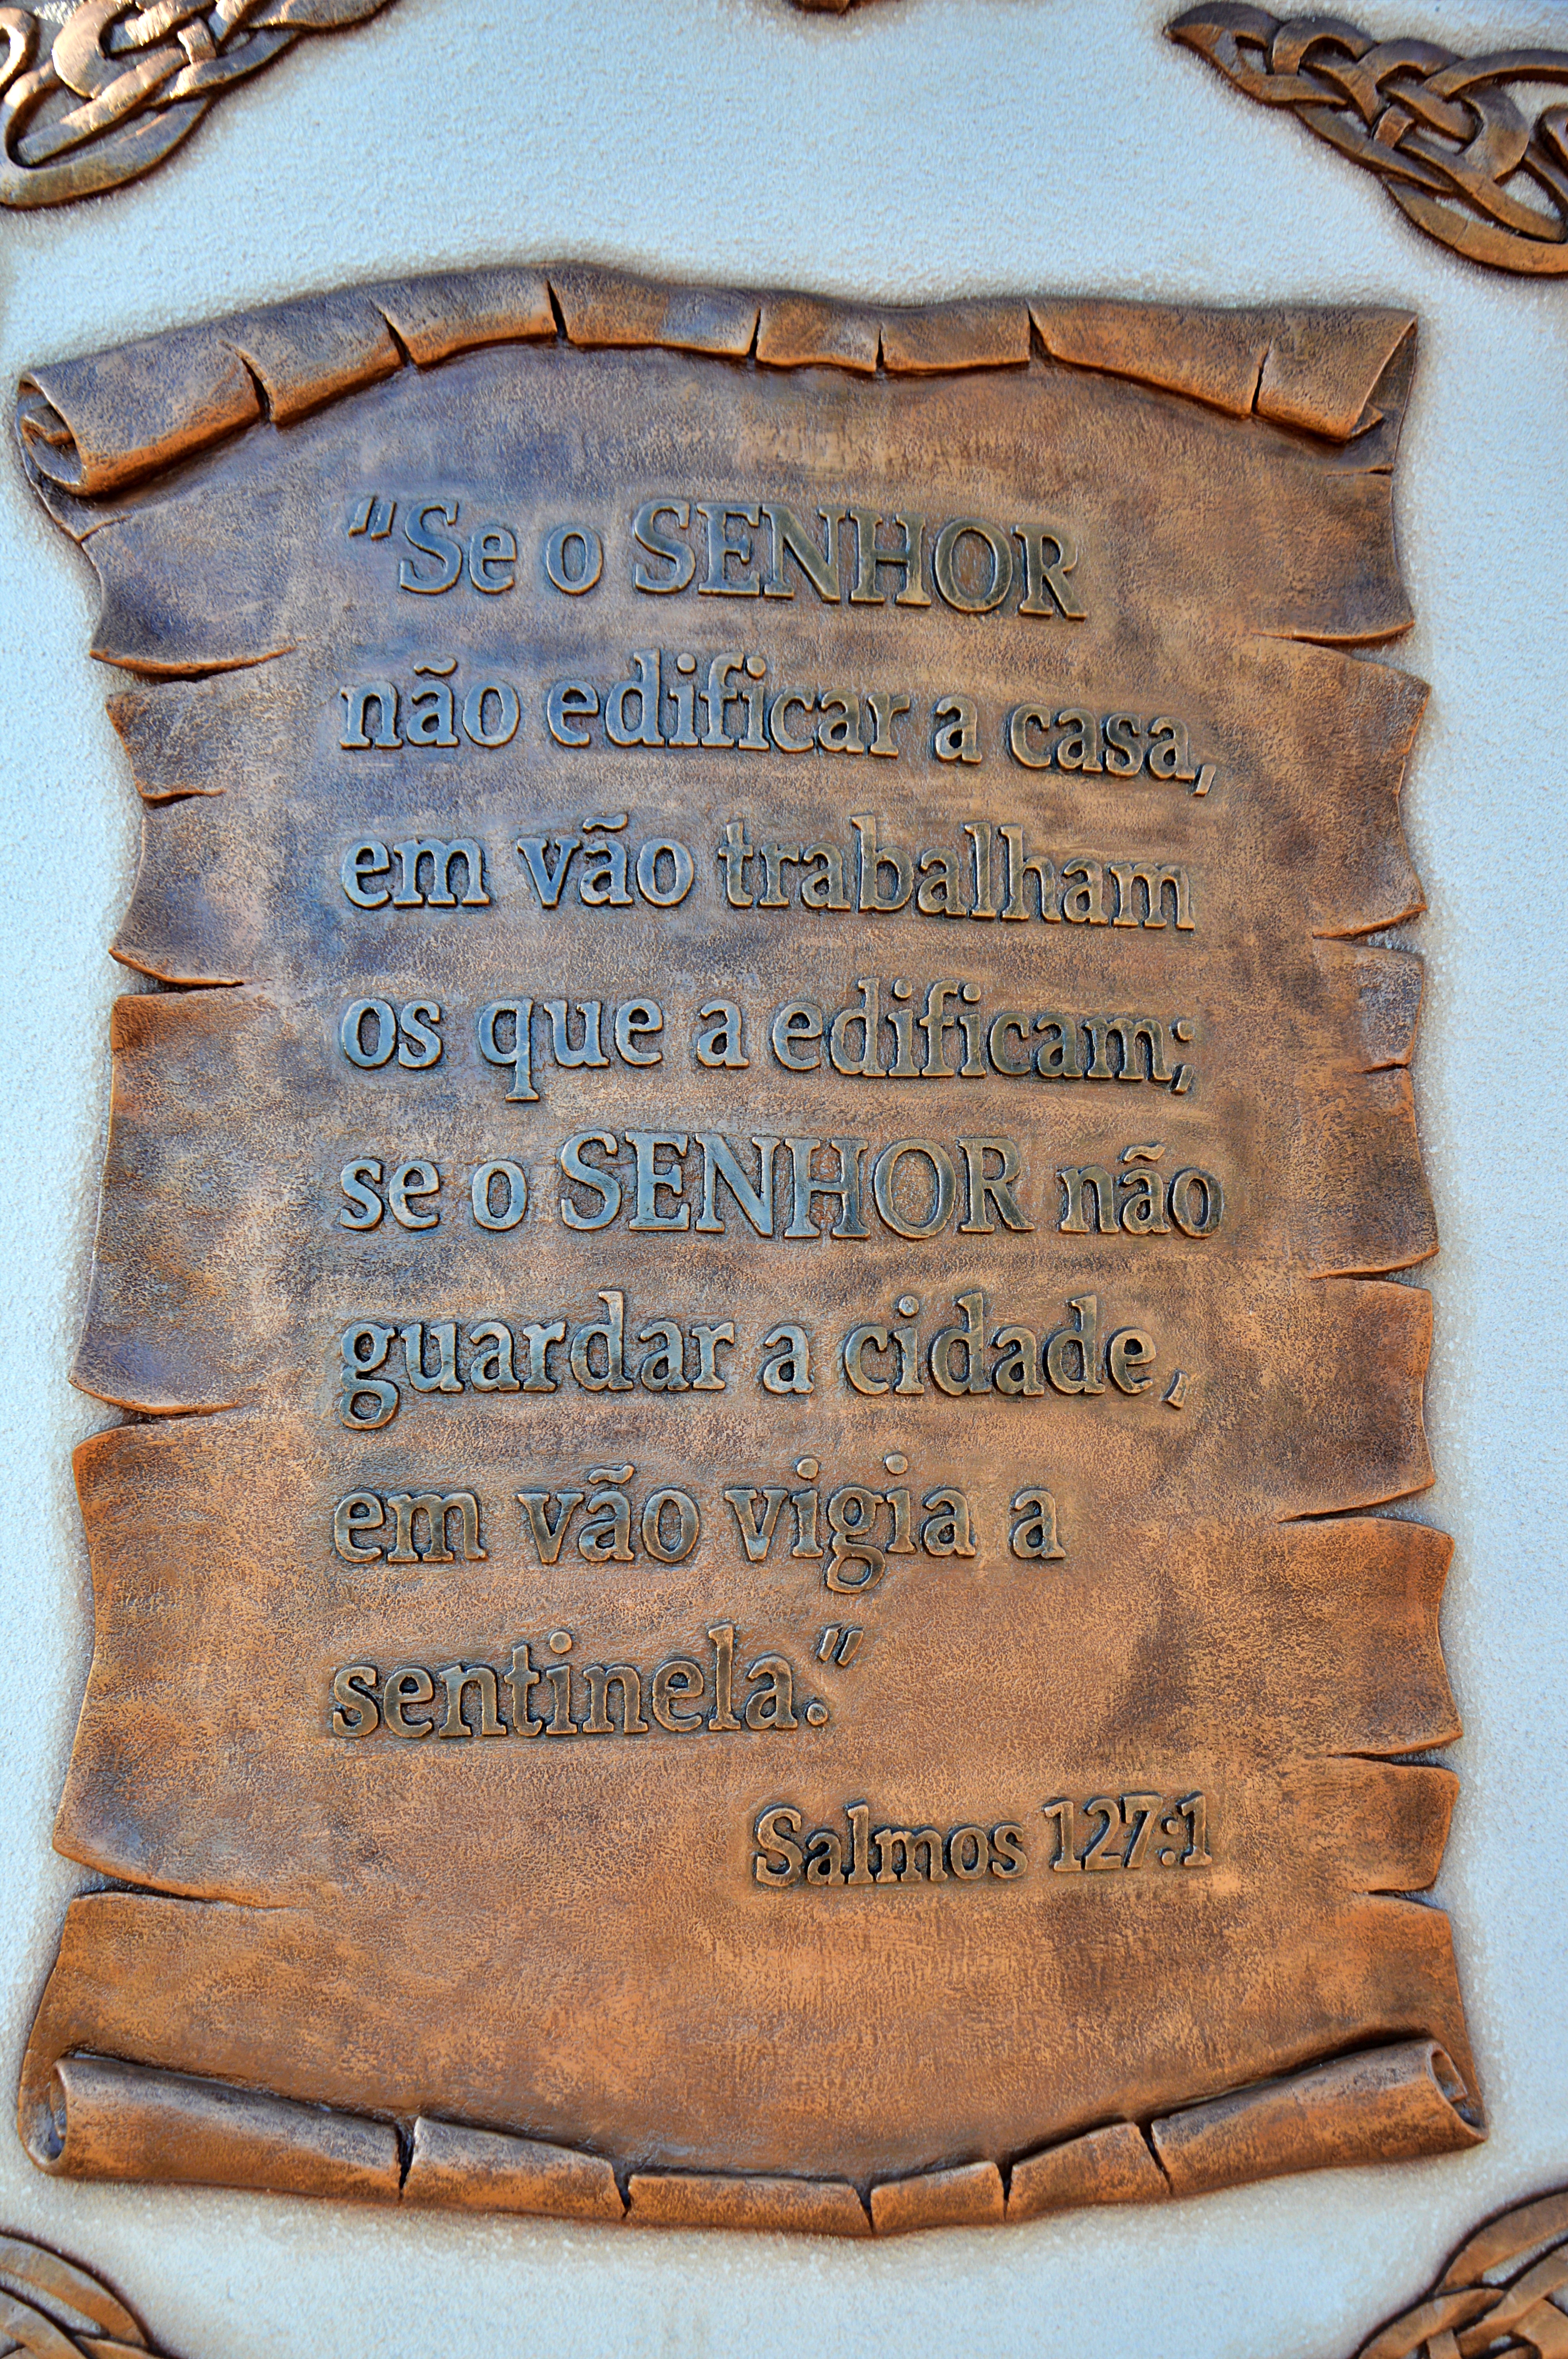 "Se o SENHOR
não edificar a casa,
em vão trabalham
os que a edificam;
se o SENHOR não
guardar a cidade,
em vão vigia a
sentinela."
Salmos 127:1